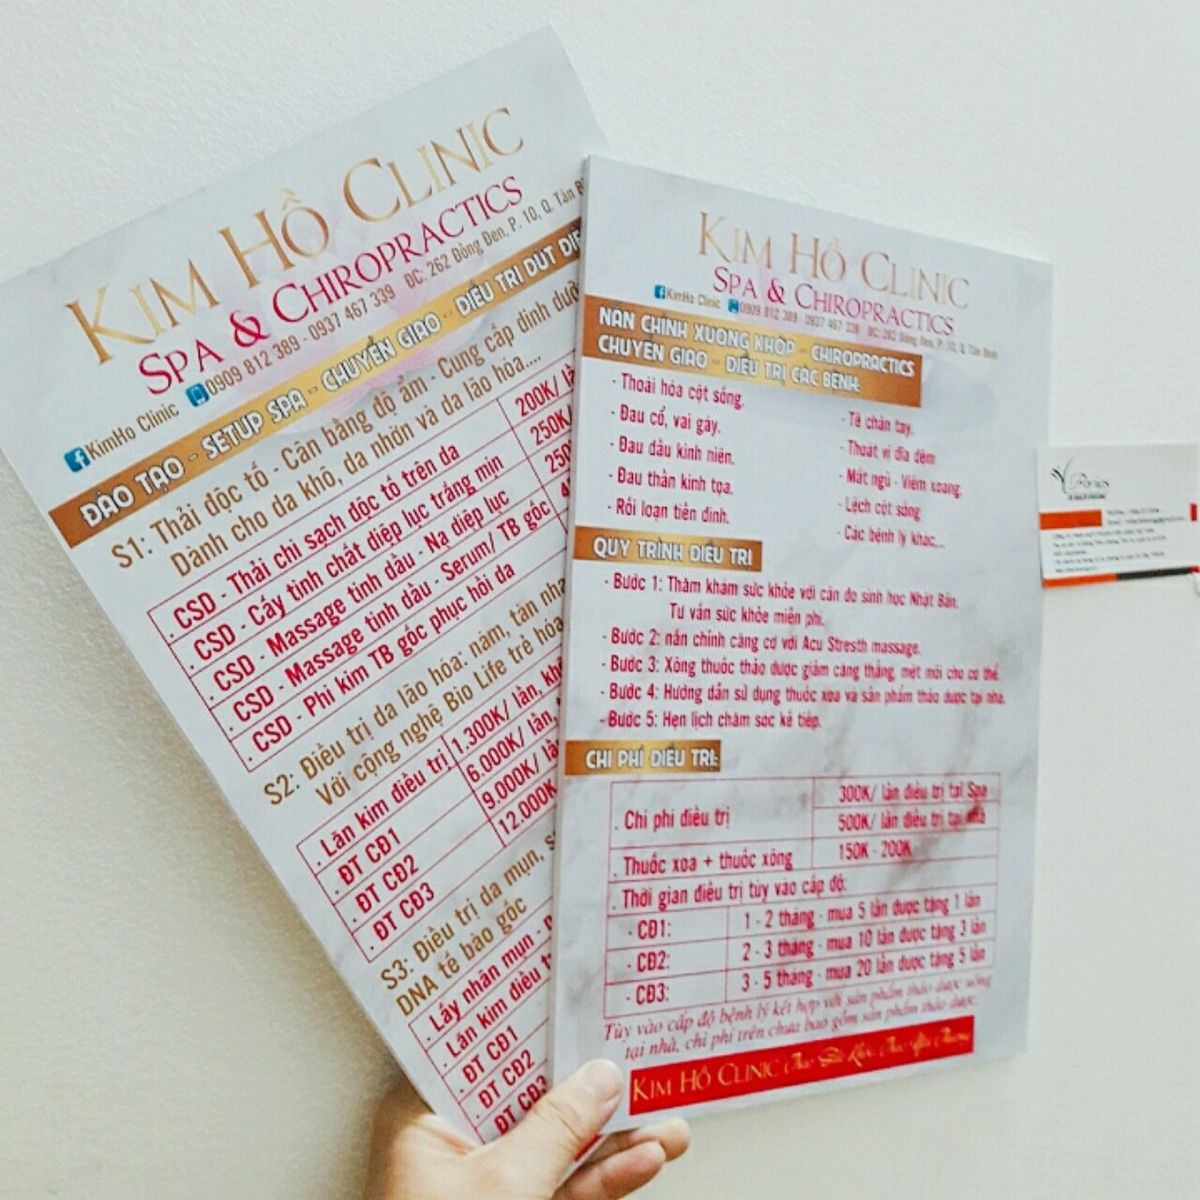 KIM HỒ CLINIC
SPA & CHIROPRACTICS
KimHo Clinic 0909 812 389 - 0937 467 339 ĐC: 262 Đồng Đen, P. 10, Q. Tân
ĐÀO TẠO - SETUP SPA - CHUYỂN GIAO - ĐIỀU TRỊ DỨT
S1: Thải độc tố - Cân bằng độ ẩm - Cung cấp dinh
Dành cho da khô, da nhờn và da lão hóa....
. CSD - Thải chì sạch độc tố trên da 200K/
. CSD - Cấy tinh chất diệp lục trắng mịn 250K/
. CSD - Massage tinh dầu - Nạ diệp lục
. CSD - Massage tinh dầu - Serum/ TB gốc
. CSD - Phi kim TB gốc phục hồi da
S2: Điều trị da lão hóa: nám, tàn
Với công nghệ Bio Life trẻ hóa
. Lăn kim điều trị 1.300K/ lần,
. ĐT CĐ1 6.000K/ lần,
. ĐT CĐ2 9.000K/
. ĐT CĐ3 12.000K
S3: Điều trị da mụn,
DNA tế bào gốc
. Lấy nhân mụn -
. Lăn kim điều
. ĐT CĐ1
. ĐT CĐ2
. ĐT CĐ3
KIM HỒ CLINIC
SPA & CHIROPRACTICS
KimHo Clinic 0909 812 389 - 0937 467 339 ĐC: 262 Đồng Đen, P. 10, Q. Tân Bình
NẮN CHỈNH XƯƠNG KHỚP - CHIROPRACTICS
CHUYỂN GIAO - ĐIỀU TRỊ CÁC BỆNH:
- Thoái hóa cột sống.
- Đau cổ, vai gáy.
- Đau đầu kinh niên.
- Đau thần kinh tọa.
- Rối loạn tiền đình.
- Tê chân tay.
- Thoát vị đĩa đệm
- Mất ngủ - Viêm xoang.
- Lệch cột sống
- Các bệnh lý khác,...
QUY TRÌNH ĐIỀU TRỊ
- Bước 1: Thăm khám sức khỏe với cân đo sinh học Nhật Bản.
Tư vấn sức khỏe miễn phí.
- Bước 2: nắn chỉnh căng cơ với Acu Stresth massage.
- Bước 3: Xông thuốc thảo dược giảm căng thẳng, mệt mỏi cho cơ thể.
- Bước 4: Hướng dẫn sử dụng thuốc xoa và sản phẩm thảo dược tại nhà.
- Bước 5: Hẹn lịch chăm sóc kế tiếp.
CHI PHÍ ĐIỀU TRỊ:
. Chi phí điều trị 300K/ lần điều trị tại Spa
500K/ lần điều trị tại nhà
. Thuốc xoa + thuốc xông 150K - 200K
. Thời gian điều trị tùy vào cấp độ:
- CĐ1: 1 - 2 tháng - mua 5 lần được tặng 1 lần
- CĐ2: 2 - 3 tháng - mua 10 lần được tặng 3 lần
- CĐ3: 3 - 5 tháng - mua 20 lần được tặng 5 lần
Tùy vào cấp độ bệnh lý kết hợp với sản phẩm thảo dược uống
tại nhà, chi phí trên chưa bao gồm sản phẩm thảo dược.
KIM HỒ CLINIC